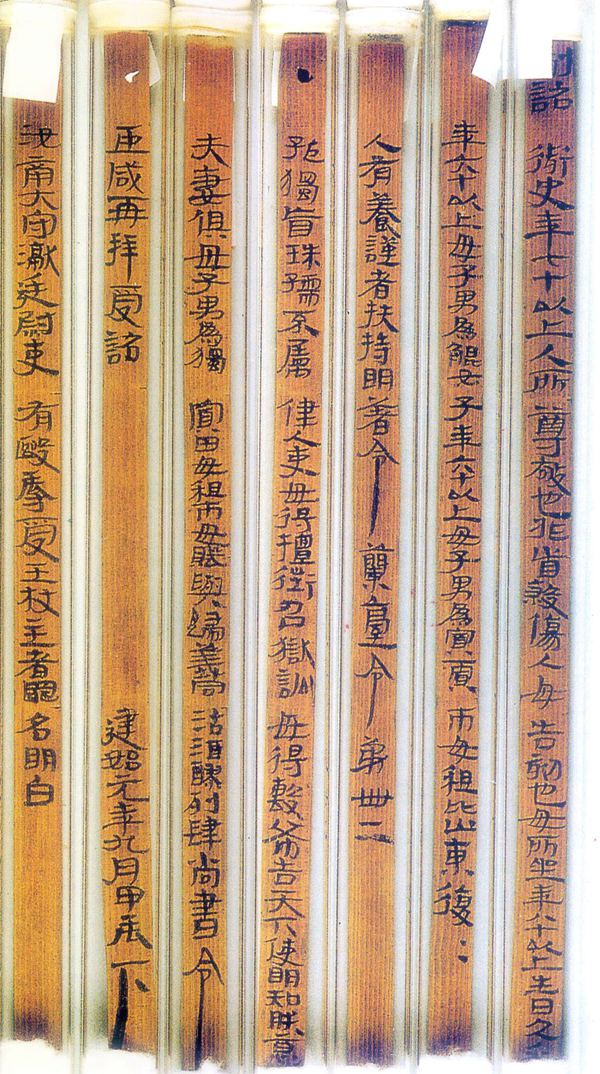 制詔 御史年七十以上人所尊敬也非首殺傷人毋告劾也毋所坐年八十以上生日久乎
年六十以上毋子男為鯤女子年六十以上毋子男為寡賈市毋租比山東復=
人有養謹者扶持明著令 蘭臺令第卌二
孤獨盲珠孺不屬律人吏毋得擅徵召獄訟毋得毄布告天下使明知朕意
夫妻俱毋子男為獨寡田毋租市毋賦與歸義同沽酒醪列肆尚書令
臣咸再拜受詔 建始元年九月甲辰下
汝南大守讞廷尉吏有毆辱受王杖主者罪名明白